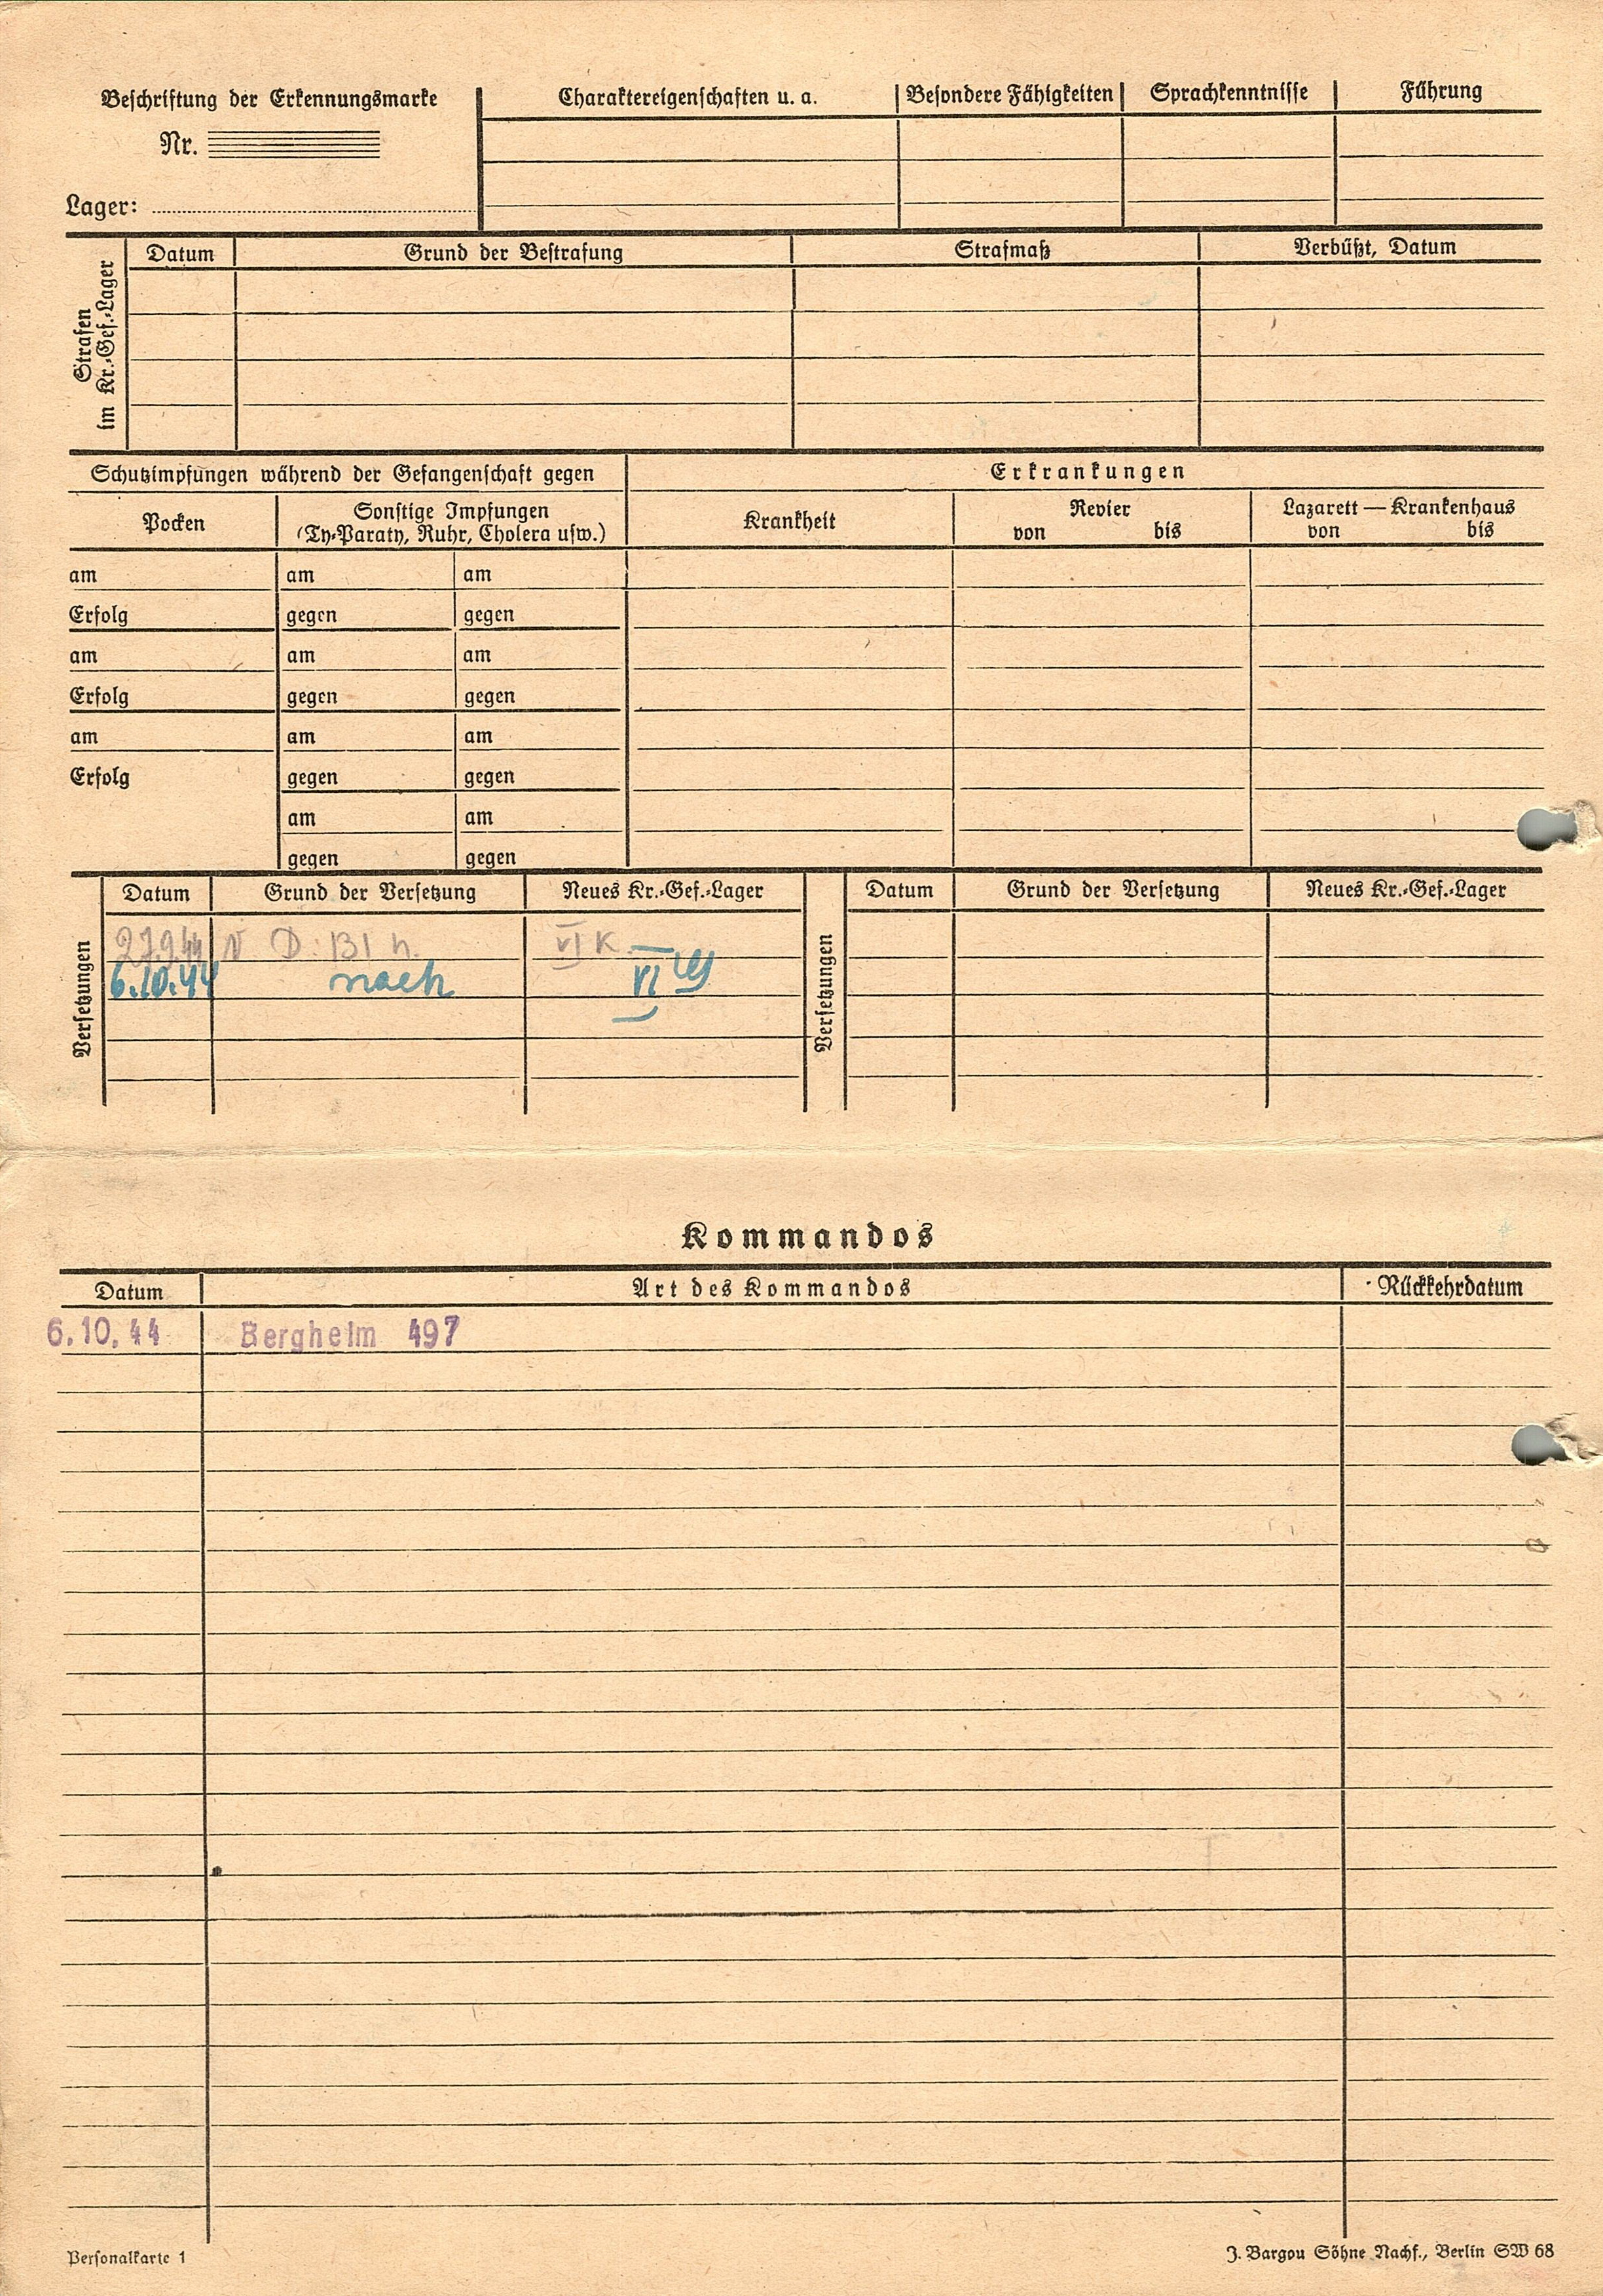 Beschriftung der Erkennungsmarke
Nr.
Lager:
Charaktereigenschaften u. a. Besondere Fähigkeiten Sprachkenntnisse Führung
Strafen
im Kr.-Gef.-Lager
Datum Grund der Bestrafung Strafmaß Verbüßt, Datum
Schutzimpfungen während der Gefangenschaft gegen
Erkrankungen
Pocken
Sonstige Impfungen
(Ty-Paraty, Ruhr, Cholera usw.)
Krankheit
Revier
von bis
Lazarett — Krankenhaus
von bis
am am am
Erfolg gegen gegen
am am am
Erfolg gegen gegen
am am am
Erfolg gegen gegen
am am
gegen gegen
Versetzungen
Datum Grund der Versetzung Neues Kr.-Gef.-Lager
27.9.44 VI K.
6.10.44 nach VI G
Versetzungen
Datum Grund der Versetzung Neues Kr.-Gef.-Lager
Kommandos
Datum Art des Kommandos Rückkehrdatum
6.10.44 Bergheim 497
Personalkarte 1
J. Bargou Söhne Nachf., Berlin SW 68